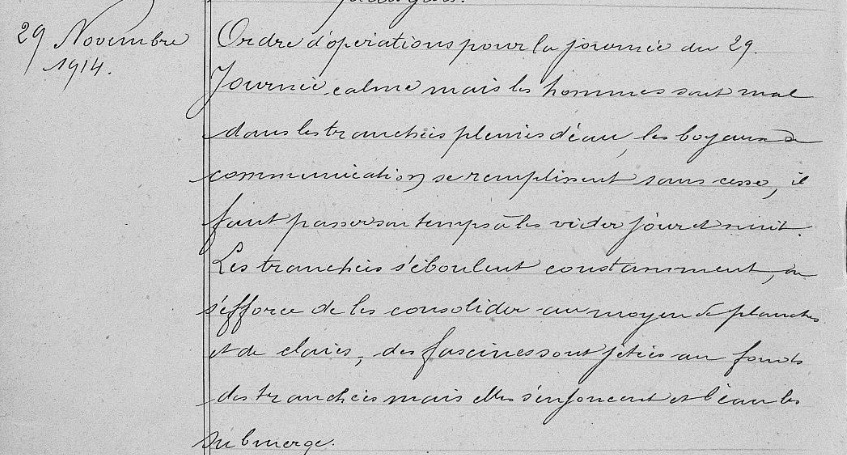 29 Novembre
1914.
Ordre d'opérations pour la journée du 29.
Journée calme mais les hommes sont mal
dans les tranchées pleines d'eau, les boyaux de
communication se remplissent sans cesse, il
faut passer son temps à les vider jour et nuit.
Les tranchées s'éboulent constamment, on
s'efforce de les consolider au moyen de planches
et de claies, des fascines sont jetées au fonds
des tranchées mais elles s'enfoncent et l'eau les
submerge.